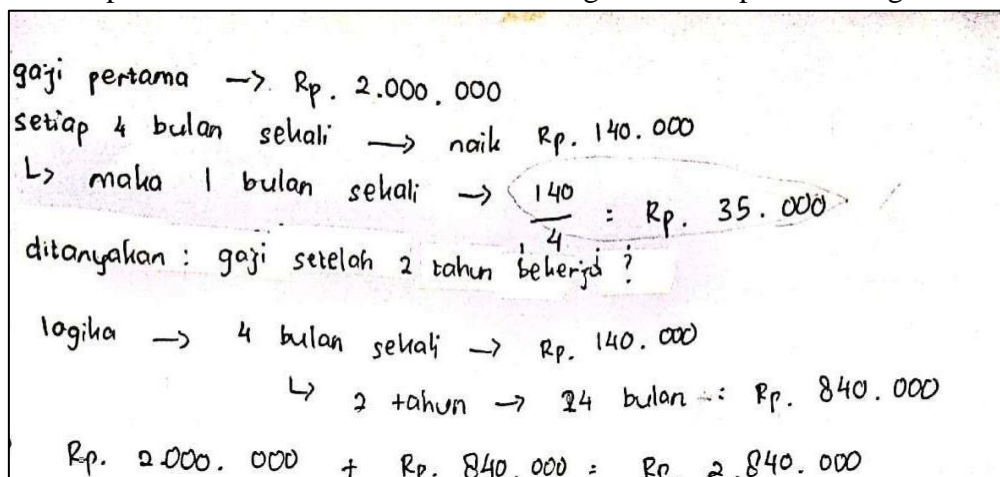 gaji pertama → Rp. 2.000.000
setiap 4 bulan sekali → naik Rp. 140.000
↳ maka 1 bulan sekali → 140/4 = Rp. 35.000
ditanyakan : gaji setelah 2 tahun bekerja ?
logika → 4 bulan sekali → Rp. 140.000
↳ 2 tahun → 24 bulan = Rp. 840.000
Rp. 2.000.000 + Rp. 840.000 = Rp 2.840.000